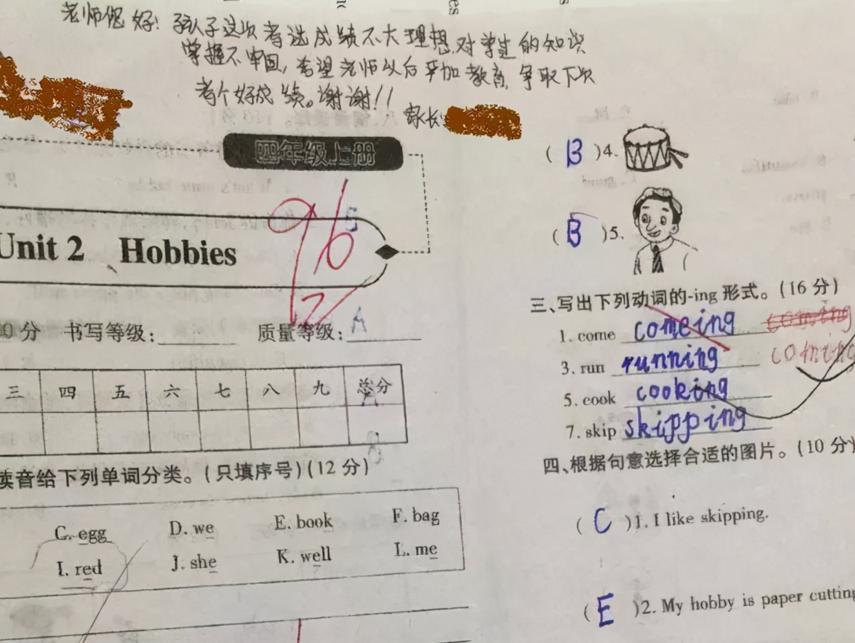 老师您好！孩子这次考试成绩不大理想，对学生的知识
掌握不牢固，希望老师以后严加教育，争取下次
考个好成绩。谢谢！！
家长
四年级上册
Unit 2 Hobbies
96
0分 书写等级: 质量等级: A
三 四 五 六 七 八 九 总分
读音给下列单词分类。(只填序号)(12分)
C. egg D. we E. book F. bag
I. red J. she K. well L. me
( B )4.
( B )5.
三、写出下列动词的-ing 形式。(16分)
1. come comeing coming
3. run running
5. cook cooking
7. skip skipping
四、根据句意选择合适的图片。(10分)
( C )1. I like skipping.
( E )2. My hobby is paper cutting